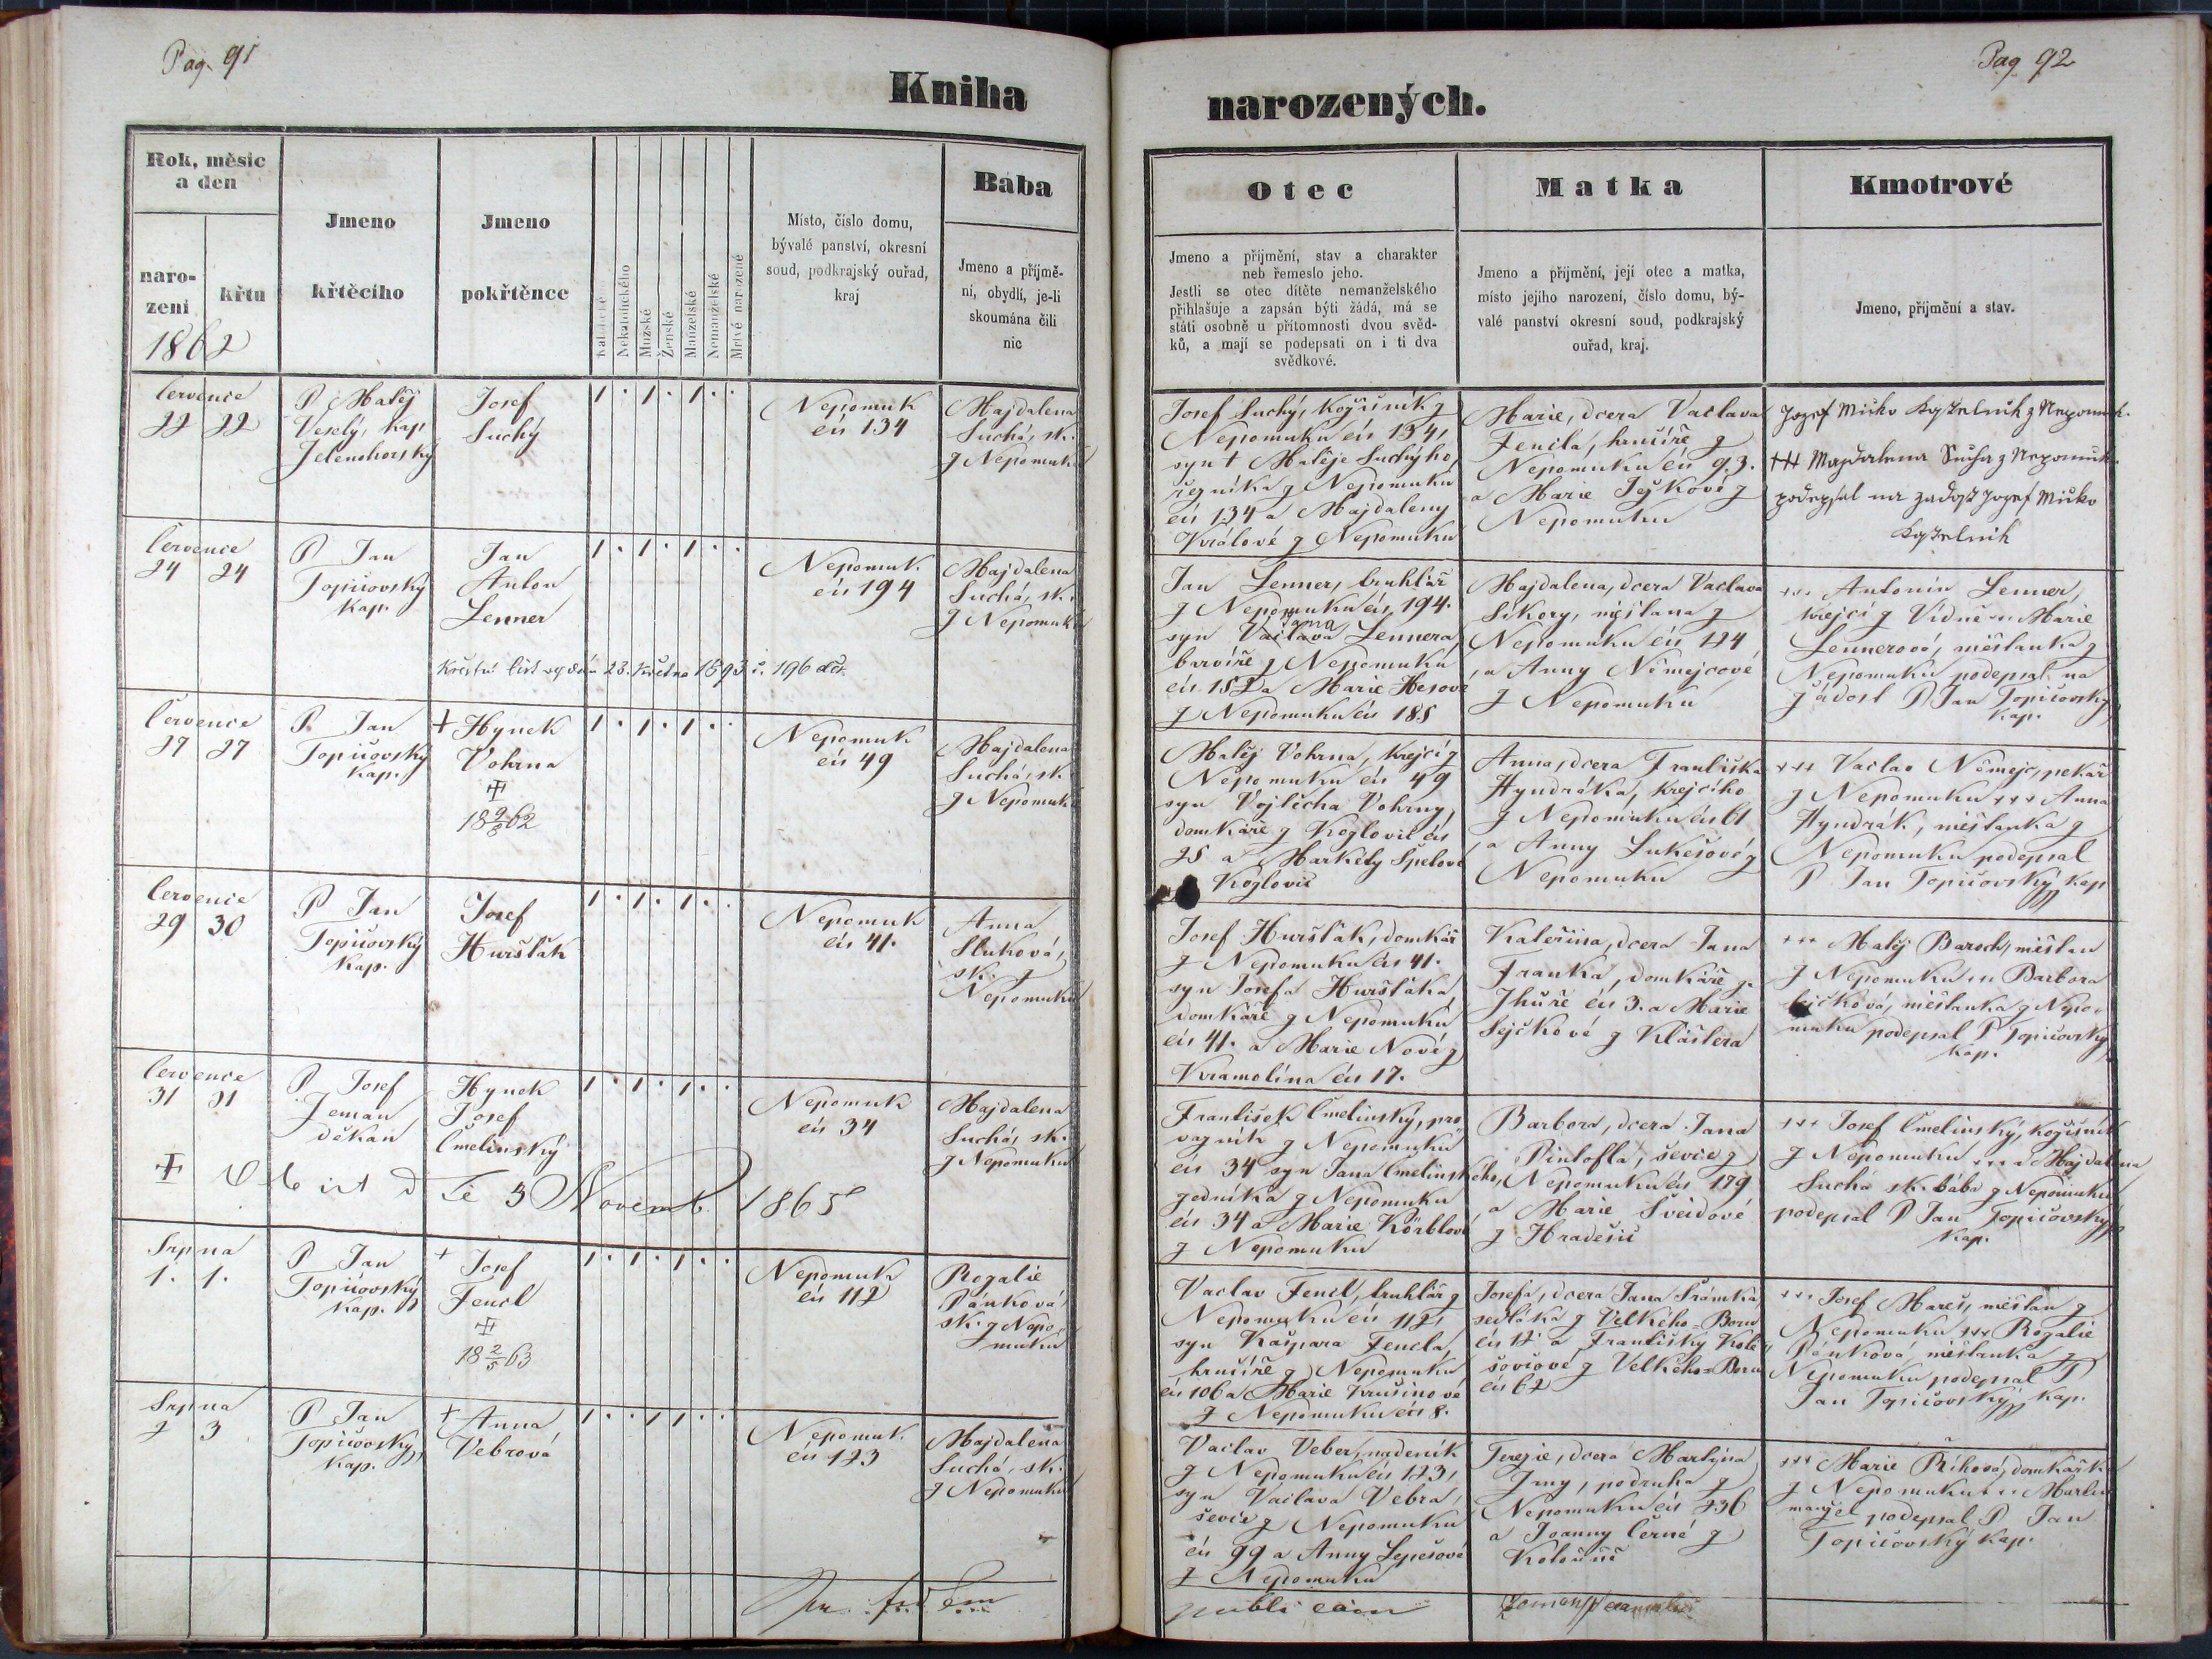 Pag. 91
Kniha
Rok, měsíc
a den
naro-
zení
křtu
1862
Jmeno
křtěcího
Jmeno
pokřtěnce
Katolického
Nekatolického
Mužské
Ženské
Manželské
Nemanželské
Mrtvě narozené
Místo, číslo domu,
bývalé panství, okresní
soud, podkrajský ouřad,
kraj
Bába
Jmeno a příjmě-
ní, obydlí, je-li
skoumána čili
nic
Července
22 22
P. Matěj
Veselý, kap
Zelenohorský
Josef
Suchý
1 . 1 . 1 . .
Nepomuk
čís 134
Majdalena
Suchá, sk.
z Nepomuku
Července
24 24
P Jan
Topičovský
Kap.
Jan
Anton
Lenner
1 . 1 . 1 . .
Nepomuk.
čís 194
Majdalena
Suchá, sk.
z Nepomuku
Křestní list vydán 23. Května 1893 č. 196
Července
27 27
P. Jan
Topičovský
Kap.
+ Hynek
Vohrna
18 9/8 62
1 . 1 . 1 . .
Nepomuk
čís 49
Majdalena
Suchá, sk.
z Nepomuku
Července
29 30
P Jan
Topičovský
Kap.
Josef
Huršťák
1 . 1 . 1 . .
Nepomuk
čís 41.
Anna
Sluková,
sk. z
Nepomuku
Července
31 31
P. Josef
Zeman
děkan
Hynek
Josef
Čmelinský
1 . 1 . 1 . .
Nepomuk
čís 34
Majdalena
Suchá, sk.
z Nepomuku
5 Novemb. 1865
Srpna
1. 1.
P Jan
Topičovský
Kap.
+ Josef
Fencl
18 2/5 63
1 . 1 . 1 . .
Nepomuk
čís 112
Rozalie
Pánková,
sk. z Nepo-
muku
Srpna
2 3
P Jan
Topičovský
Kap.
+ Anna
Vebrová
1 . . 1 1 . .
Nepomuk.
čís 123
Majdalena
Suchá, sk.
z Nepomuku
Pag 92
narozených.
Otec
Jmeno a příjmění, stav a charakter
neb řemeslo jeho.
Jestli se otec dítěte nemanželského
přihlašuje a zapsán býti žádá, má se
státi osobně u přítomnosti dvou svěd-
ků, a mají se podepsati on i ti dva
svědkové.
Matka
Jmeno a příjmění, její otec a matka,
místo jejího narození, číslo domu, bý-
valé panství okresní soud, podkrajský
ouřad, kraj.
Kmotrové
Jmeno, příjmění a stav.
Josef Suchý, kožišník z
Nepomuku čís 134,
syn † Matěje Suchýho,
řezníka z Nepomuku
čís 134 a Majdaleny
Králové z Nepomuku
Marie, dcera Václava
Fencla, hrnčíře z
Nepomuku čís 93.
a Marie Ježkové z
Nepomuku
Jozef Mičko z Nepomuk.
+++ Majdalena Sucha z Nepomuk.
podepsal na zadost Jozef Mičko
Jan Lenner, truhlář
z Nepomuku čís 194.
syn Václava Jana Lennera
barvíře z Nepomuku
čís 182 a Marie Hesové
z Nepomuku čís 185
Majdalena, dcera Václava
Sikory, měšťana z
Nepomuku čís 124
a Anny Němejcové
z Nepomuku
+++ Antonín Lenner,
krejčí z Vídně +++ Marie
Lennerová, měšťanka z
Nepomuku podepsal na
žádost P Jan Topičovský
Kap.
Matěj Vohrna, krejčí z
Nepomuku čís 49
syn Vojtěcha Vohrny,
domkáře z Kozlovic čís
25 a Markéty Špelové
z Kozlovic
Anna, dcera Františka
Hyndráka, krejčího
z Nepomuku čís 61
a Anny Lukešové z
Nepomuku
+++ Václav Němejc, pekař
z Nepomuku +++ Anna
Hyndrák, měšťanka z
Nepomuku podepsal
P Jan Topičovský Kap
Josef Huršťák, domkář
z Nepomuku čís 41.
syn Josefa Huršťáka,
domkáře z Nepomuku
čís 41. a Marie Nové z
Kramolína čís 17.
Kateřina, dcera Jana
Franka, domkáře z
Zhůře čís 3. a Marie
Sejčkové z Kláštera
+++ Matěj Baroch, měšťan
z Nepomuku +++ Barbora
měšťanka z Nepo-
muku podepsal P Topičovský
Kap.
František Čmelinský, pro-
vazník z Nepomuku
čís 34 syn Jana Čmelinského,
z Nepomuku
čís 34 a Marie Körblové
z Nepomuku
Barbora, dcera Jana
Pintofla, ševce z
Nepomuku čís 179
a Marie Sveidové
z Hradešic
+++ Josef Čmelinský, kožišník
z Nepomuku +++ a Majdalena
Suchá sk. bába z Nepomuku
podepsal P Jan Topičovský
Kap.
Václav Fencl, truhlář z
Nepomuku čís 112,
syn Kašpara Fencla,
hrnčíře z Nepomuku
čís 106 a Marie Krušinové
z Nepomuku čís 8.
Josefa, dcera Jana Šrámka,
sedláka z Velkého-Boru
čís 12 a Františky Kole-
šovicové z Velkého-Boru
čís 62
+++ Josef Mareš, měšťan z
Nepomuku, +++ Rozalie
Pánková, měšťanka z
Nepomuku podepsal P
Jan Topičovský Kap.
Václav Veber, nádeník
z Nepomuku čís 123,
syn Václava Vebra,
ševce z Nepomuku
čís 99 a Anny Lepešové
z Nepomuku
Terezie, dcera Martina
Zrny, podruha z
Nepomuku čís 236
a Joanny Černé z
+++ Marie Říhová, domkářka
z Nepomuku +++ Martin
manžel podepsal P Jan
Topičovský Kap.